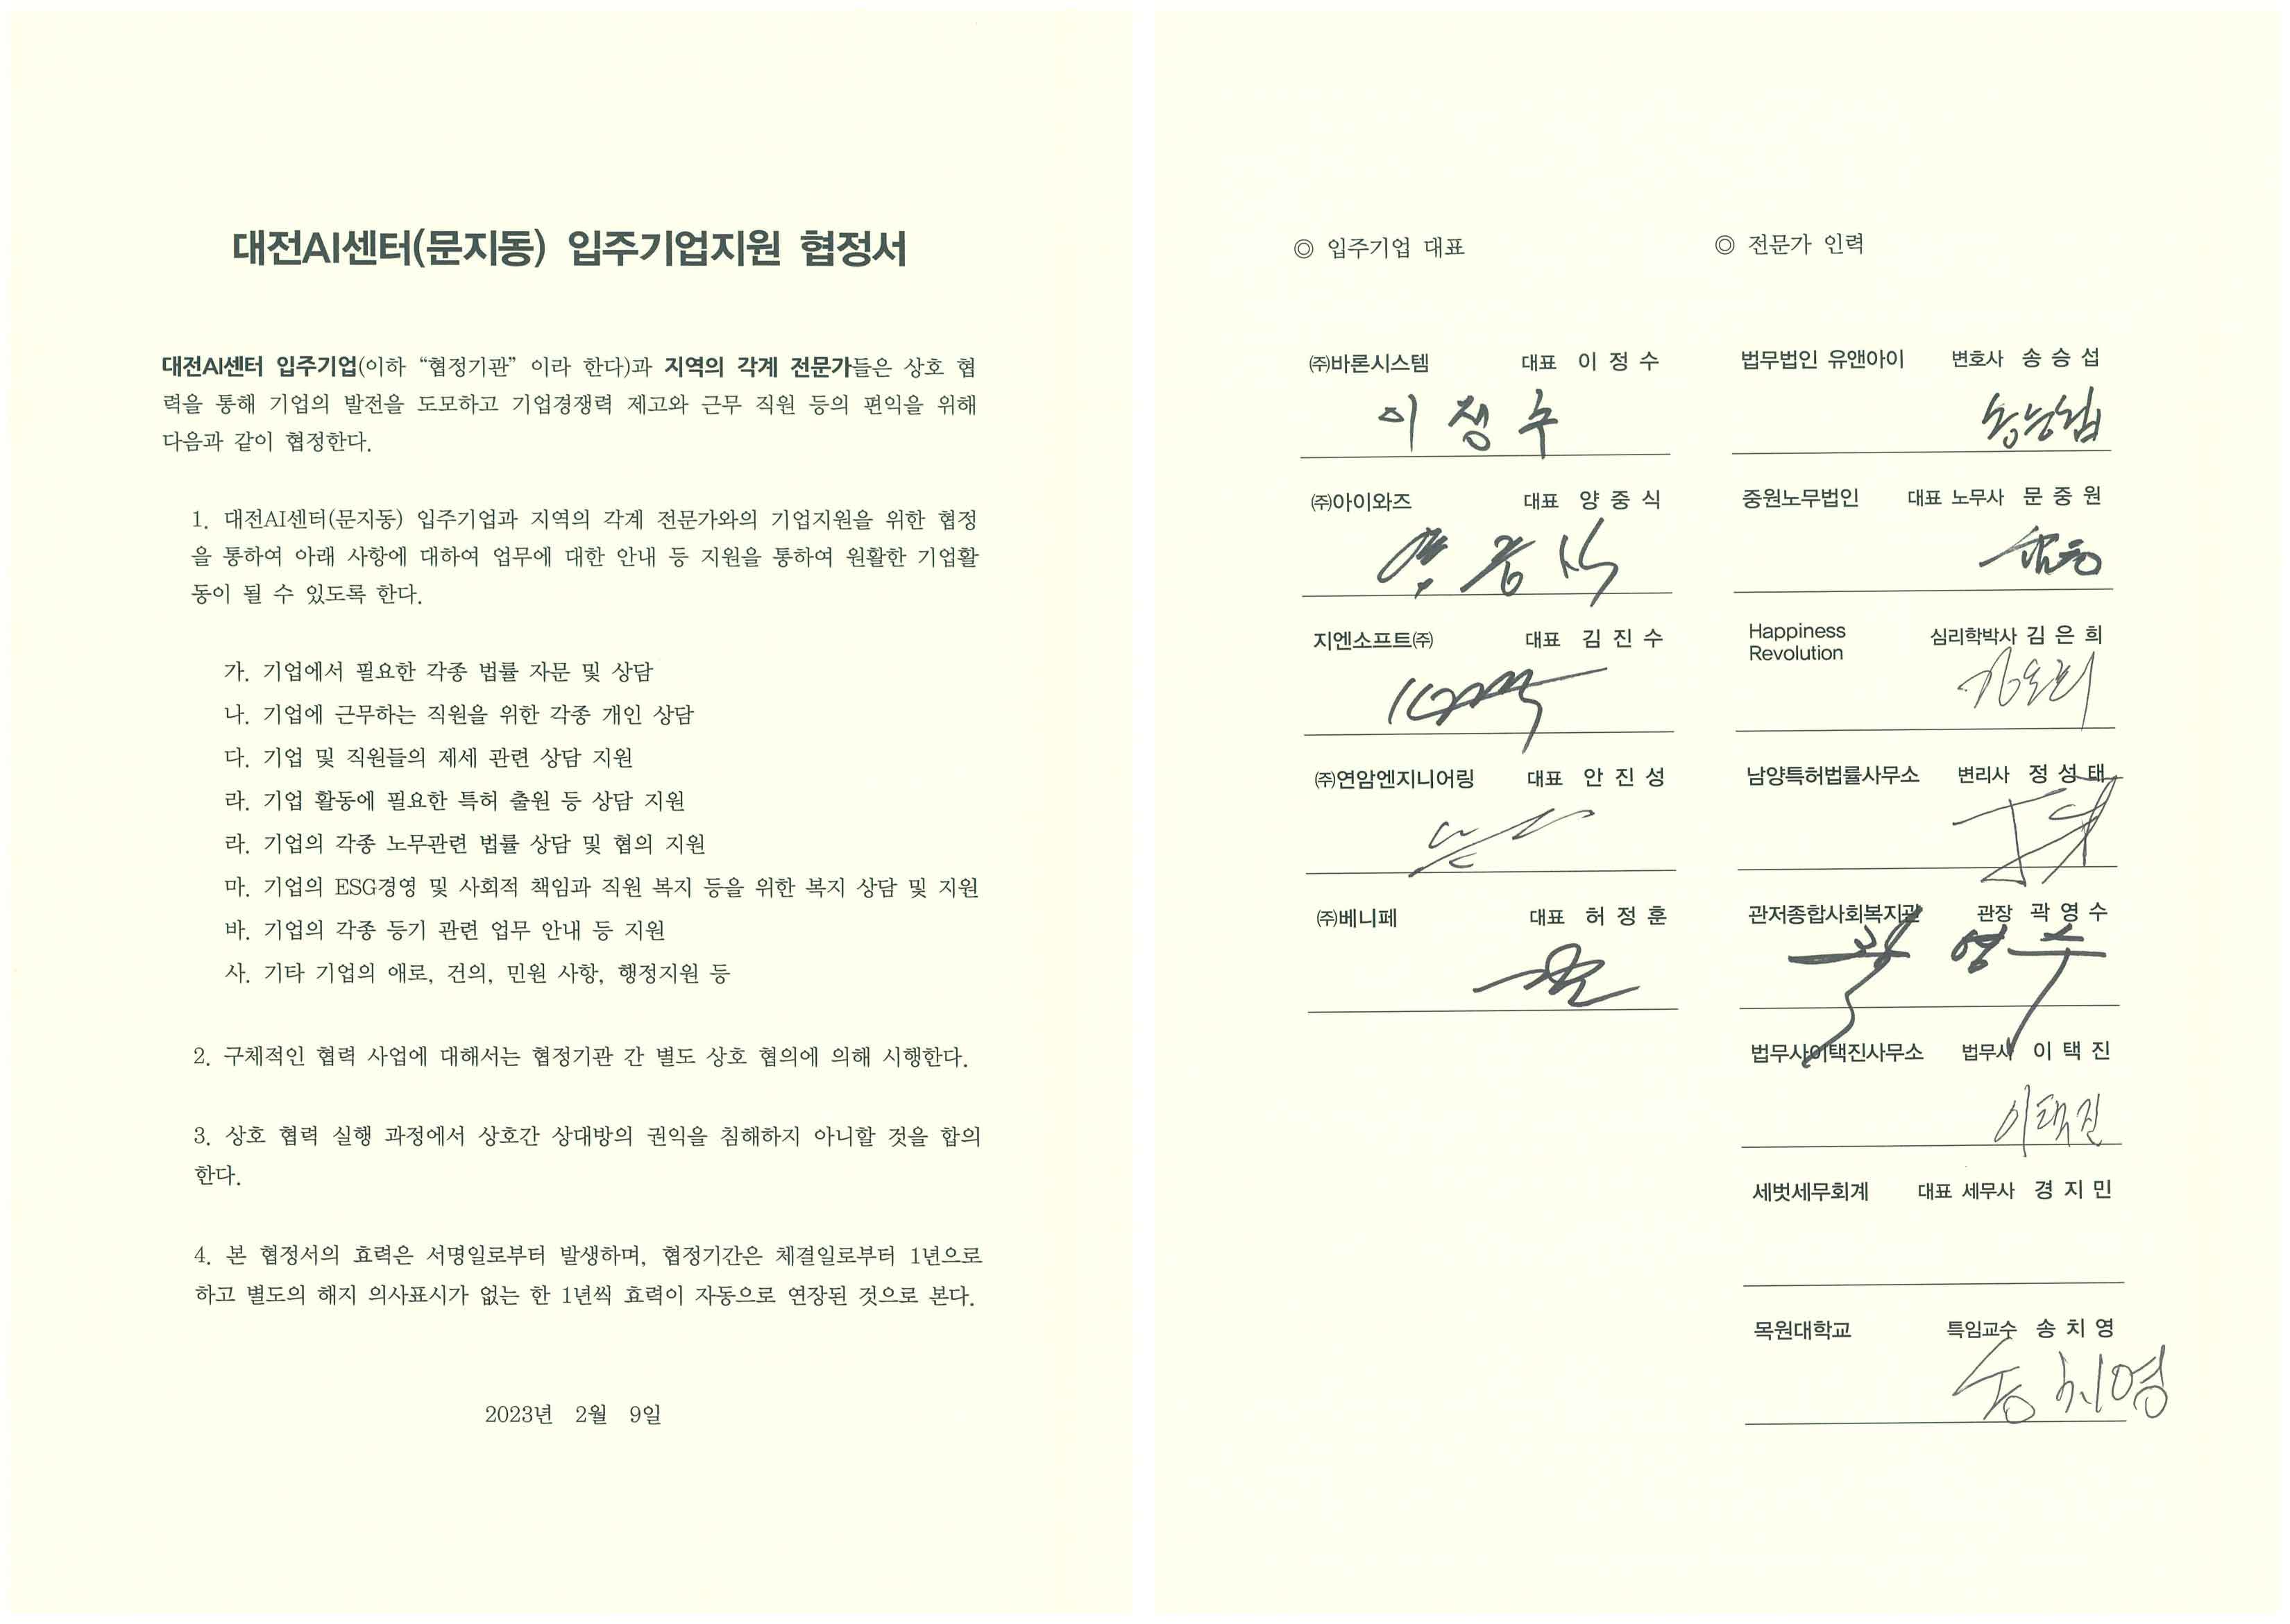 대전AI센터(문지동) 입주기업지원 협정서
대전AI센터 입주기업(이하 “협정기관” 이라 한다)과 지역의 각계 전문가들은 상호 협
력을 통해 기업의 발전을 도모하고 기업경쟁력 제고와 근무 직원 등의 편익을 위해
다음과 같이 협정한다.
1. 대전AI센터(문지동) 입주기업과 지역의 각계 전문가와의 기업지원을 위한 협정
을 통하여 아래 사항에 대하여 업무에 대한 안내 등 지원을 통하여 원활한 기업활
동이 될 수 있도록 한다.
가. 기업에서 필요한 각종 법률 자문 및 상담
나. 기업에 근무하는 직원을 위한 각종 개인 상담
다. 기업 및 직원들의 제세 관련 상담 지원
라. 기업 활동에 필요한 특허 출원 등 상담 지원
라. 기업의 각종 노무관련 법률 상담 및 협의 지원
마. 기업의 ESG경영 및 사회적 책임과 직원 복지 등을 위한 복지 상담 및 지원
바. 기업의 각종 등기 관련 업무 안내 등 지원
사. 기타 기업의 애로, 건의, 민원 사항, 행정지원 등
2. 구체적인 협력 사업에 대해서는 협정기관 간 별도 상호 협의에 의해 시행한다.
3. 상호 협력 실행 과정에서 상호간 상대방의 권익을 침해하지 아니할 것을 합의
한다.
4. 본 협정서의 효력은 서명일로부터 발생하며, 협정기간은 체결일로부터 1년으로
하고 별도의 해지 의사표시가 없는 한 1년씩 효력이 자동으로 연장된 것으로 본다.
2023년 2월 9일
◎ 입주기업 대표
㈜바론시스템 대표 이 정 수
이 정 수
㈜아이와즈 대표 양 중 식
양 중 식
지엔소프트㈜ 대표 김 진 수
㈜연암엔지니어링 대표 안 진 성
㈜베니페 대표 허 정 훈
◎ 전문가 인력
법무법인 유앤아이 변호사 송 승 섭
송승섭
중원노무법인 대표 노무사 문 중 원
Happiness
Revolution 심리학박사 김 은 희
김은희
남양특허법률사무소 변리사 정 성 태
관저종합사회복지관 관장 곽 영 수
곽 영 수
법무사이택진사무소 법무사 이 택 진
이택진
세벗세무회계 대표 세무사 경 지 민
목원대학교 특임교수 송 치 영
송 치 영